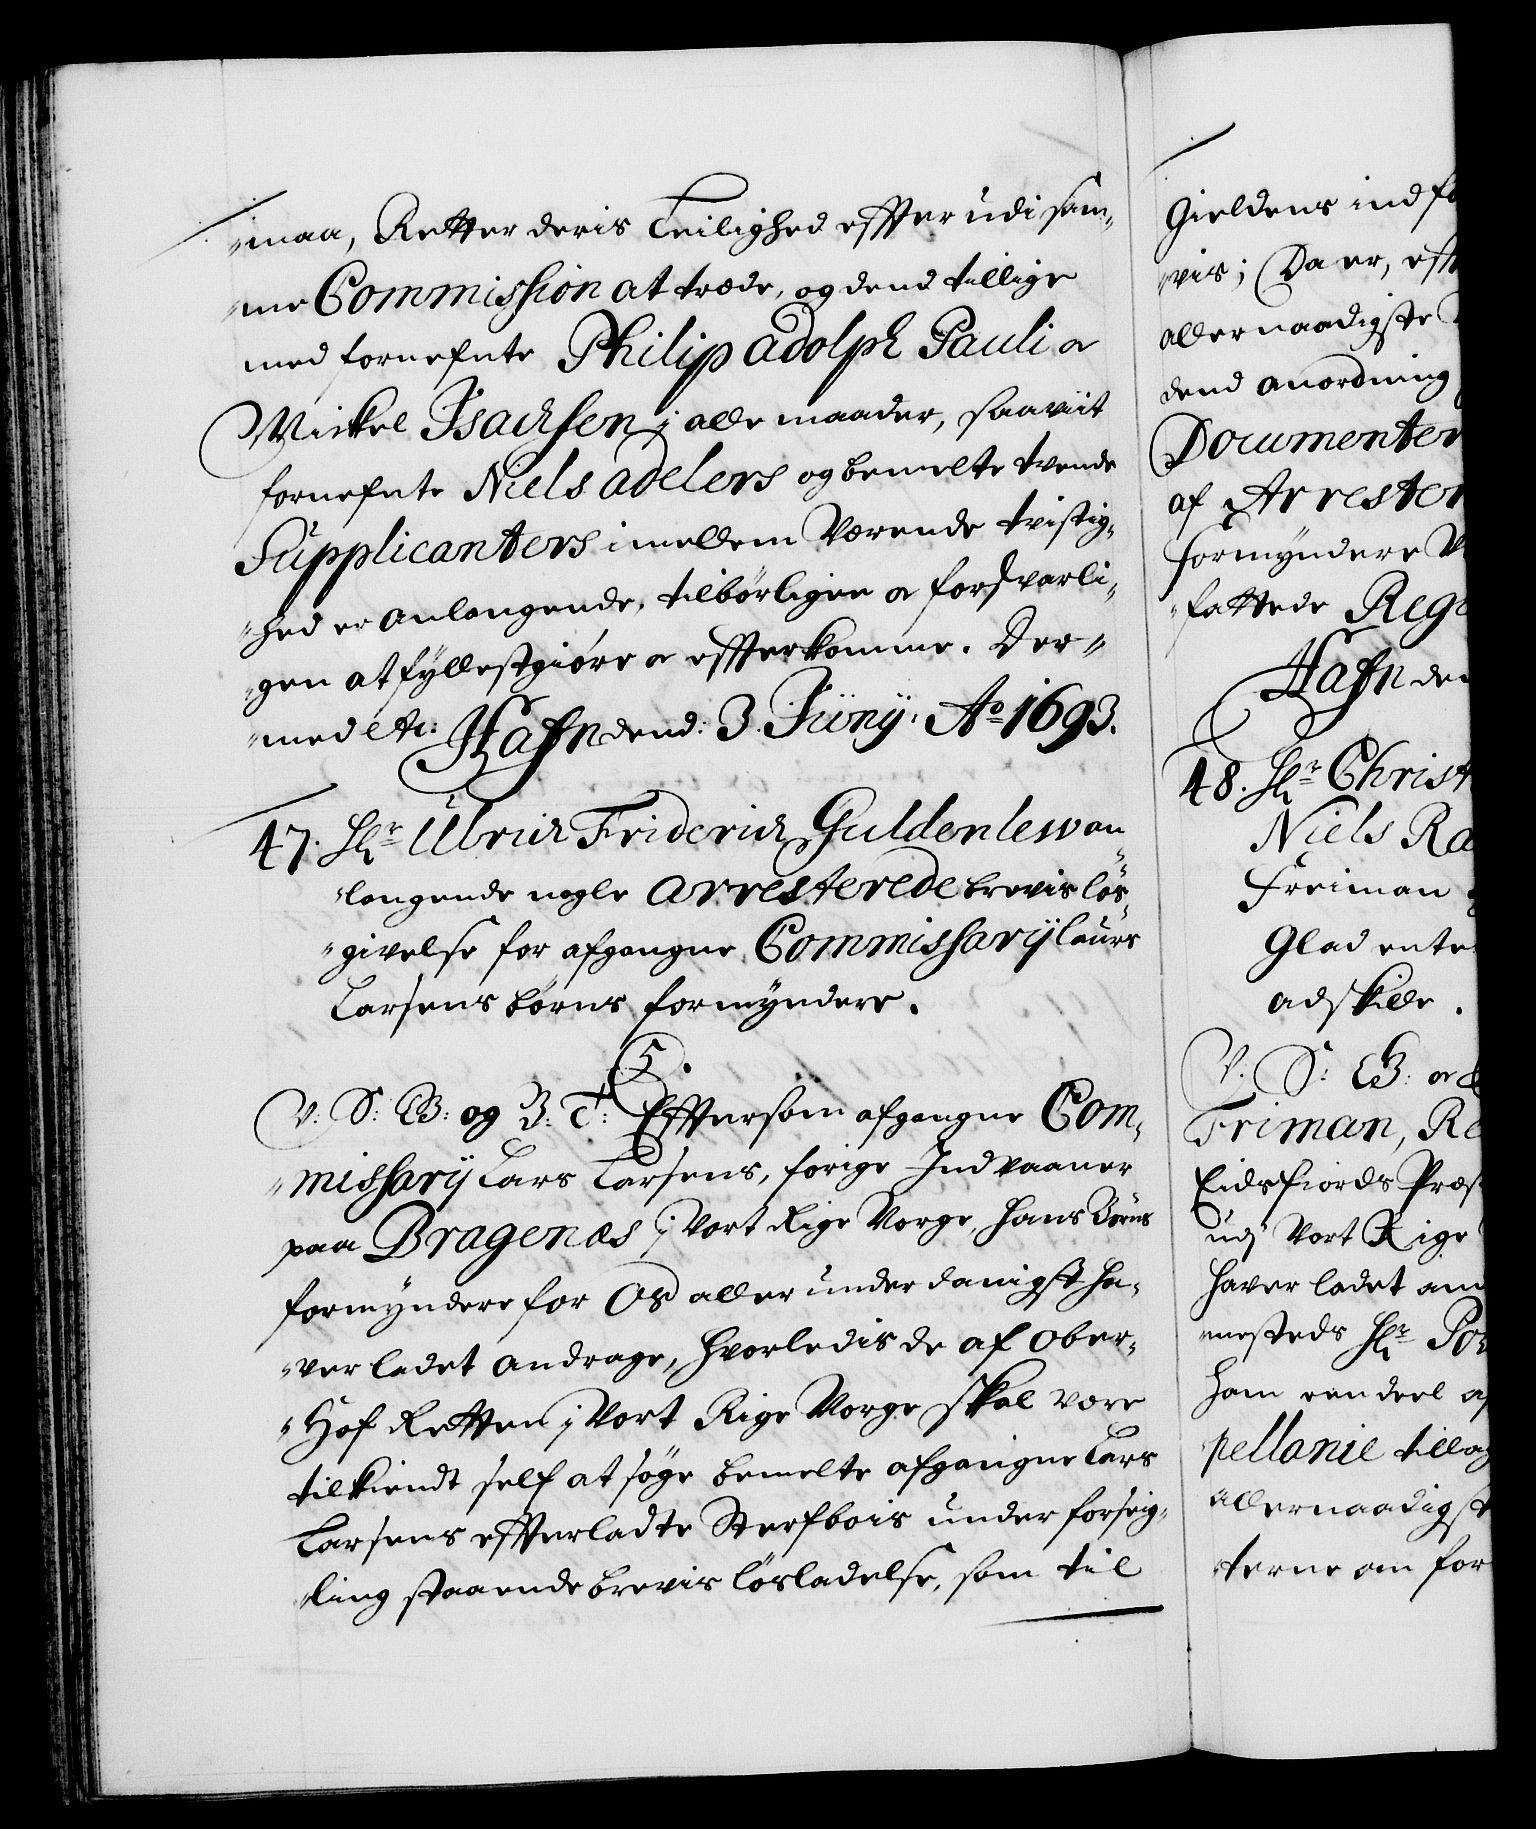 "maa, Retter deris Leilighed effter udi sam-
"me Commission at træde, og dend tillige
med fornefnte Philip Adolph Pauli oc
Mickel Isachsen i alle maader, saaviit
fornefnte Niels Adelers og bemelte tvende
Supplicanters imellem Værende tvistig-
"hed er anlangende, tilbørligen oc forsvarli-
"gen at fyllestgiøre oc effterkomme. Der-
"med etc: Hafn dend: 3. Junÿ. Ao 1693.
47. Hr Ulrich Friderich Guldenlew an-
"langende nogle Arresterede brevis løs-
"givelse for afgangne Commissarÿ Laurs
Larsens børns formyndere.
C5.
V: S: G B: og B: T: Effterson afgangne Com-
"missarÿ Lars Larsens, forige Indvaaner
paa Bragenæs i Vort Rige Norge, hans Børns
formyndere for Os allerunderdanigst ha-
"ver ladet andrage, hvorledis de af Ober-
"Hof Retten i Vort Rige Norge skal være
tilkiendt self at søge bemelte afgangne Lars
Larsens effterladte Sterfbois under forseig-
"ling staaende brevis løsladelse, som til
Gieldens ind
"vis; Da er,
allernaadigste
dend anordning
Documenter
af Arrester
formyndere
"fattede
Hafn den
48. Hr Christ
Niels
Freiman
Glad ente
adskille.
V: S: G B: oc
Friman,
Eidsfiords
udj Vort Rige
haver ladet
"mesteds Hr
ham een deel
pellanie
allernaadigst
"terne om for